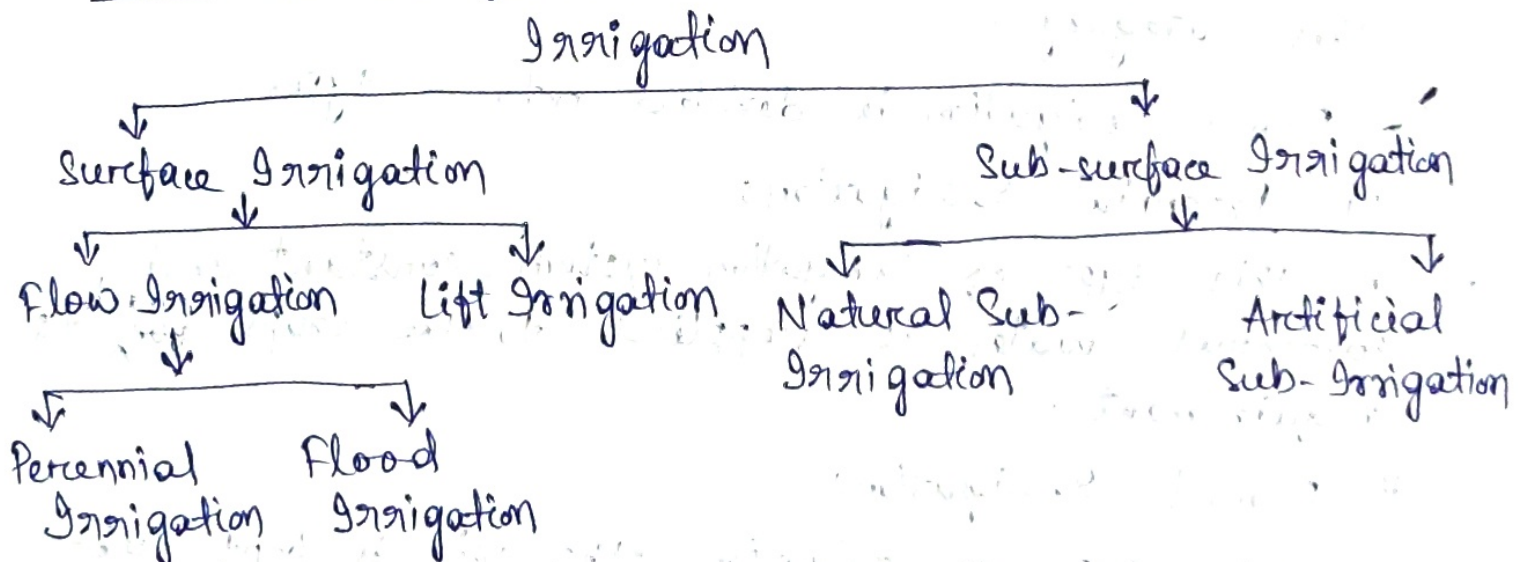 Irrigation
Surface Irrigation
Sub-surface Irrigation
Flow Irrigation
Lift Irrigation
Natural Sub-
Irrigation
Artificial
Sub-Irrigation
Perennial
Irrigation
Flood
Irrigation